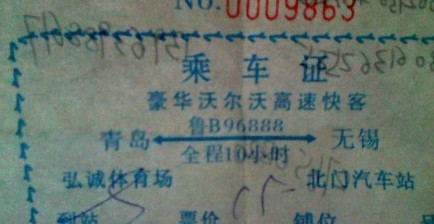 NO.0009863
乘车证
豪华沃尔沃高速快客
鲁B96888
青岛 无锡
全程10小时
弘诚体育场 北门汽车站
到站 票价 铺位